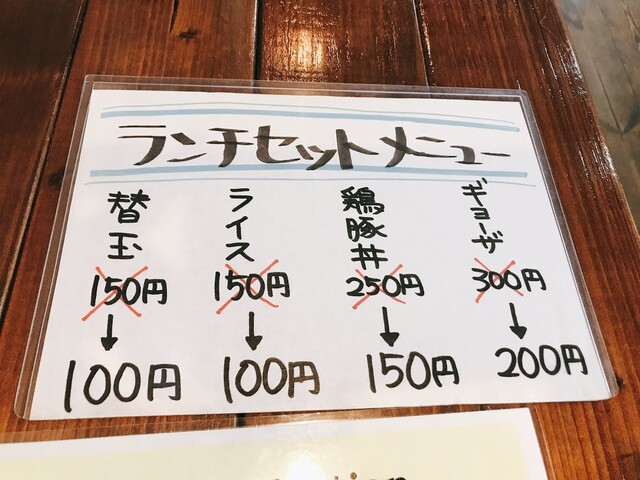 ランチセットメニュー
ギョーザ
300円
↓
200円
鶏豚丼
250円
↓
150円
ライス
150円
↓
100円
替玉
150円
↓
100円